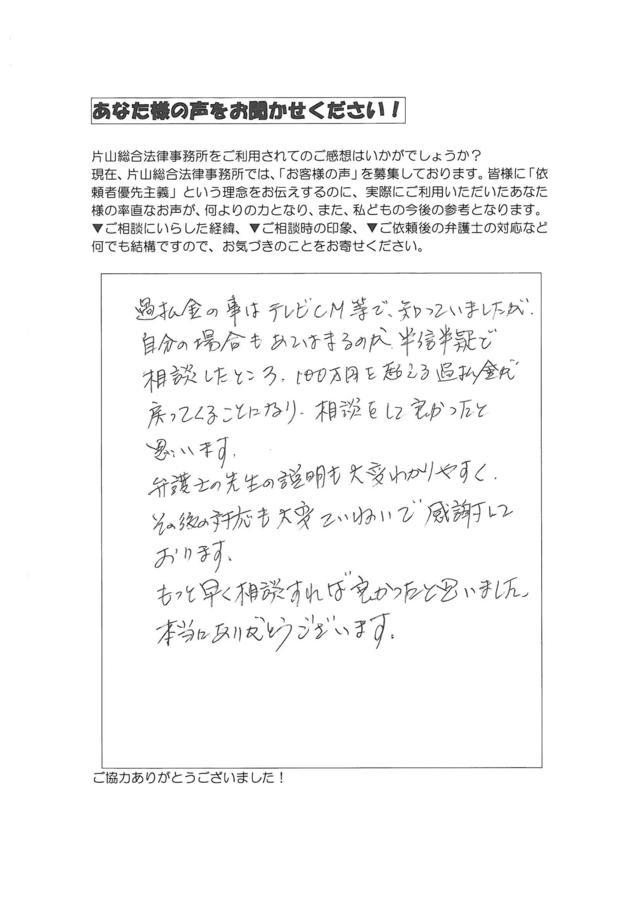 あなた様の声をお聞かせください！
片山総合法律事務所をご利用されてのご感想はいかがでしょうか？
現在、片山総合法律事務所では、「お客様の声」を募集しております。皆様に「依
頼者優先主義」という理念をお伝えするのに、実際にご利用いただいたあなた
様の率直なお声が、何よりの力となり、また、私どもの今後の参考となります。
▼ご相談にいらした経緯、▼ご相談時の印象、▼ご依頼後の弁護士の対応など
何でも結構ですので、お気づきのことをお寄せください。
過払金の事はテレビCM等で、知っていましたが、
自分の場合もあてはまるのか、半信半疑で
相談したところ、100万円を超える過払金が
戻ってくることになり、相談をして良かったと
思います。
弁護士の先生の説明も大変わかりやすく、
その後の対応も大変ていねいで感謝して
おります。
もっと早く相談すれば良かったと思いました。
本当にありがとうございます。
ご協力ありがとうございました！